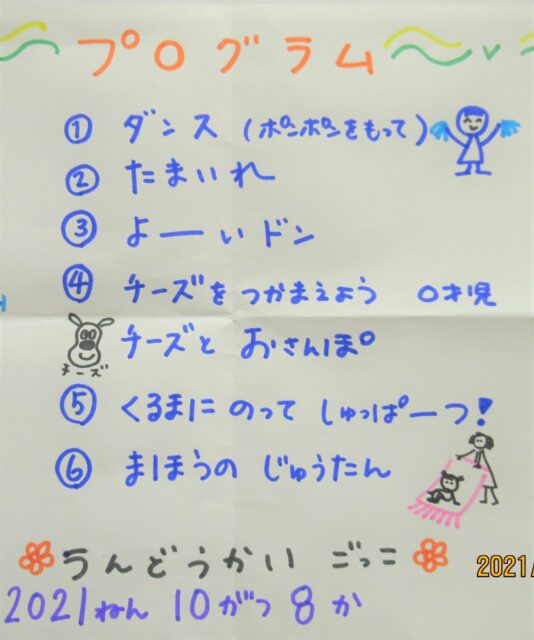 プログラム
① ダンス (ポンポンをもって)
② たまいれ
③ よーいドン
④ チーズを つかまえよう 0才児
チーズと おさんぽ
チーズ
⑤ くるまに のって しゅっぱーつ!
⑥ まほうの じゅうたん
うんどうかい ごっこ
2021/
2021ねん 10がつ 8か